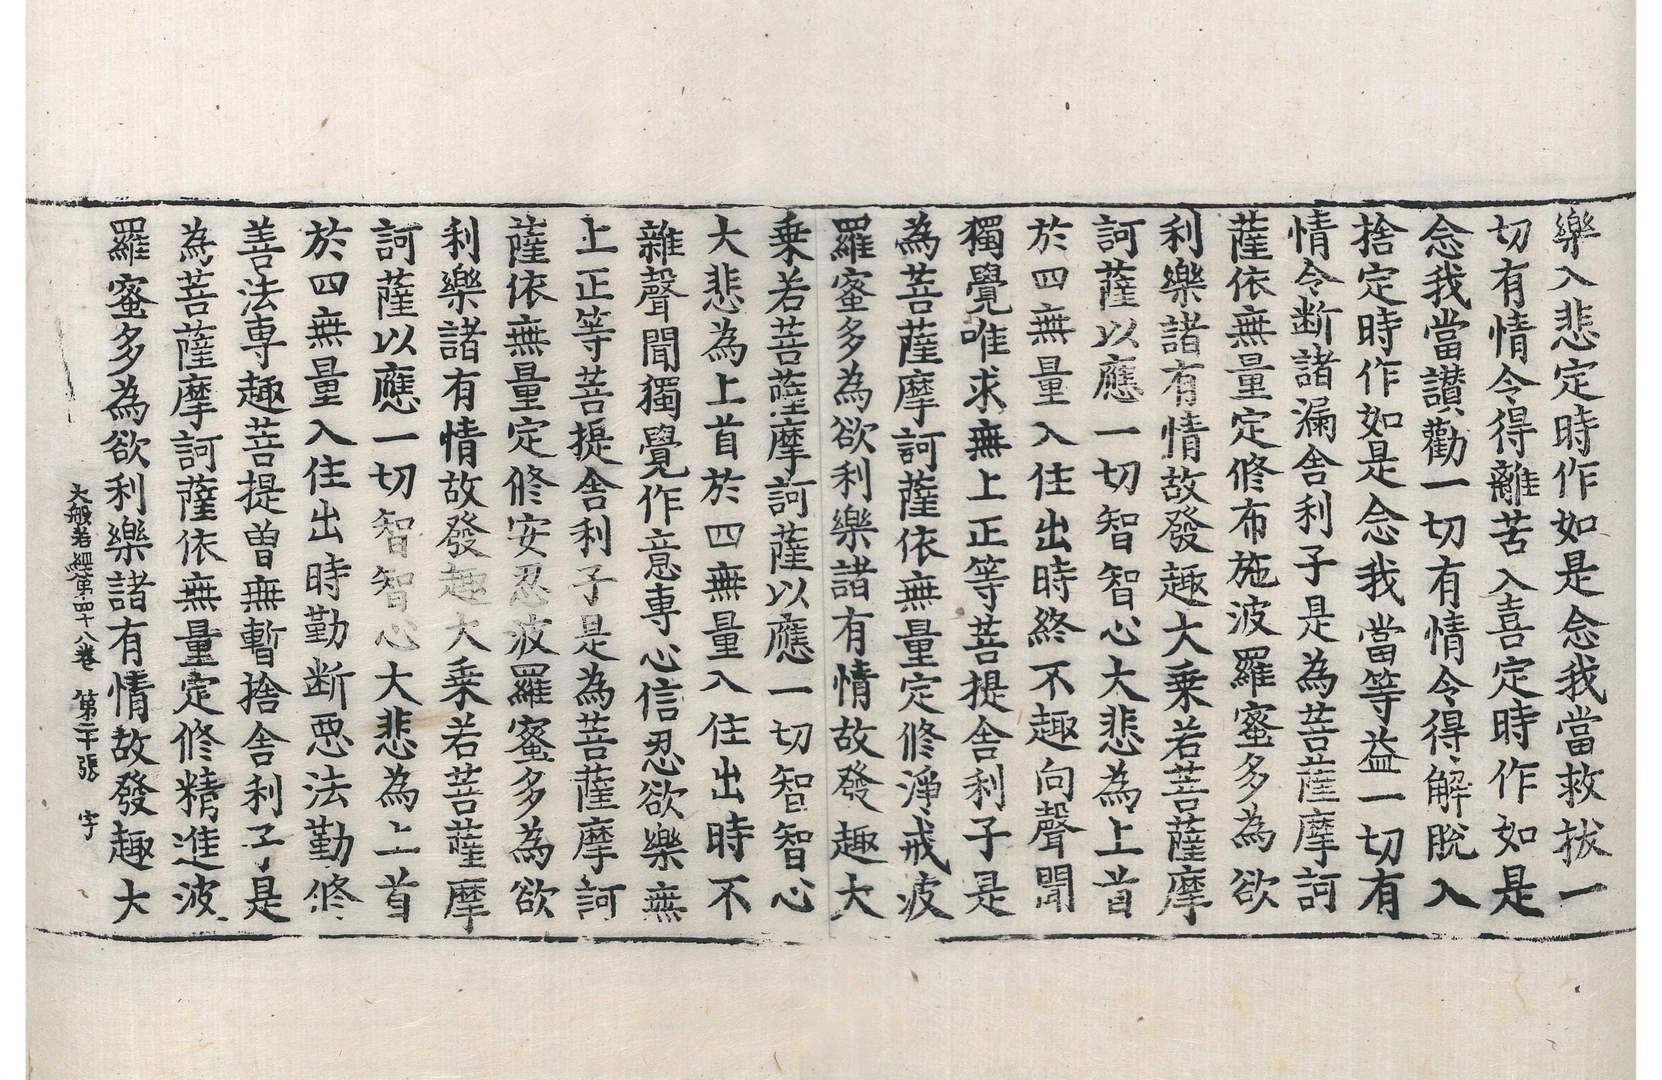 樂入悲定時作如是念我當救拔一
切有情令得離苦入喜定時作如是
念我當讃勸一切有情令得解脫入
捨定時作如是念我當等益一切有
情令斷諸漏舍利子是為菩薩摩訶
薩依無量定修布施波羅蜜多為欲
利樂諸有情故發趣大乗若菩薩摩
訶薩以應一切智智心大悲為上首
於四無量入住出時終不趣向聲聞
獨覺唯求無上正等菩提舍利子是
為菩薩摩訶薩依無量定修淨戒波
羅蜜多為欲利樂諸有情故發趣大
乗若菩薩摩訶薩以應一切智智心
大悲為上首於四無量入住出時不
雜聲聞獨覺作意專心信忍欲樂無
上正等菩提舍利子是為菩薩摩訶
薩依無量定修安忍波羅蜜多為欲
利樂諸有情故發趣大乗若菩薩摩
訶薩以應一切智智心大悲為上首
於四無量入住出時勤断惡法勤修
善法專趣菩提曾無暫捨舍利子是
為菩薩摩訶薩依無量定修精進波
羅蜜多為欲利樂諸有情故發趣大
大般若經第四十八卷 第二十張 宇